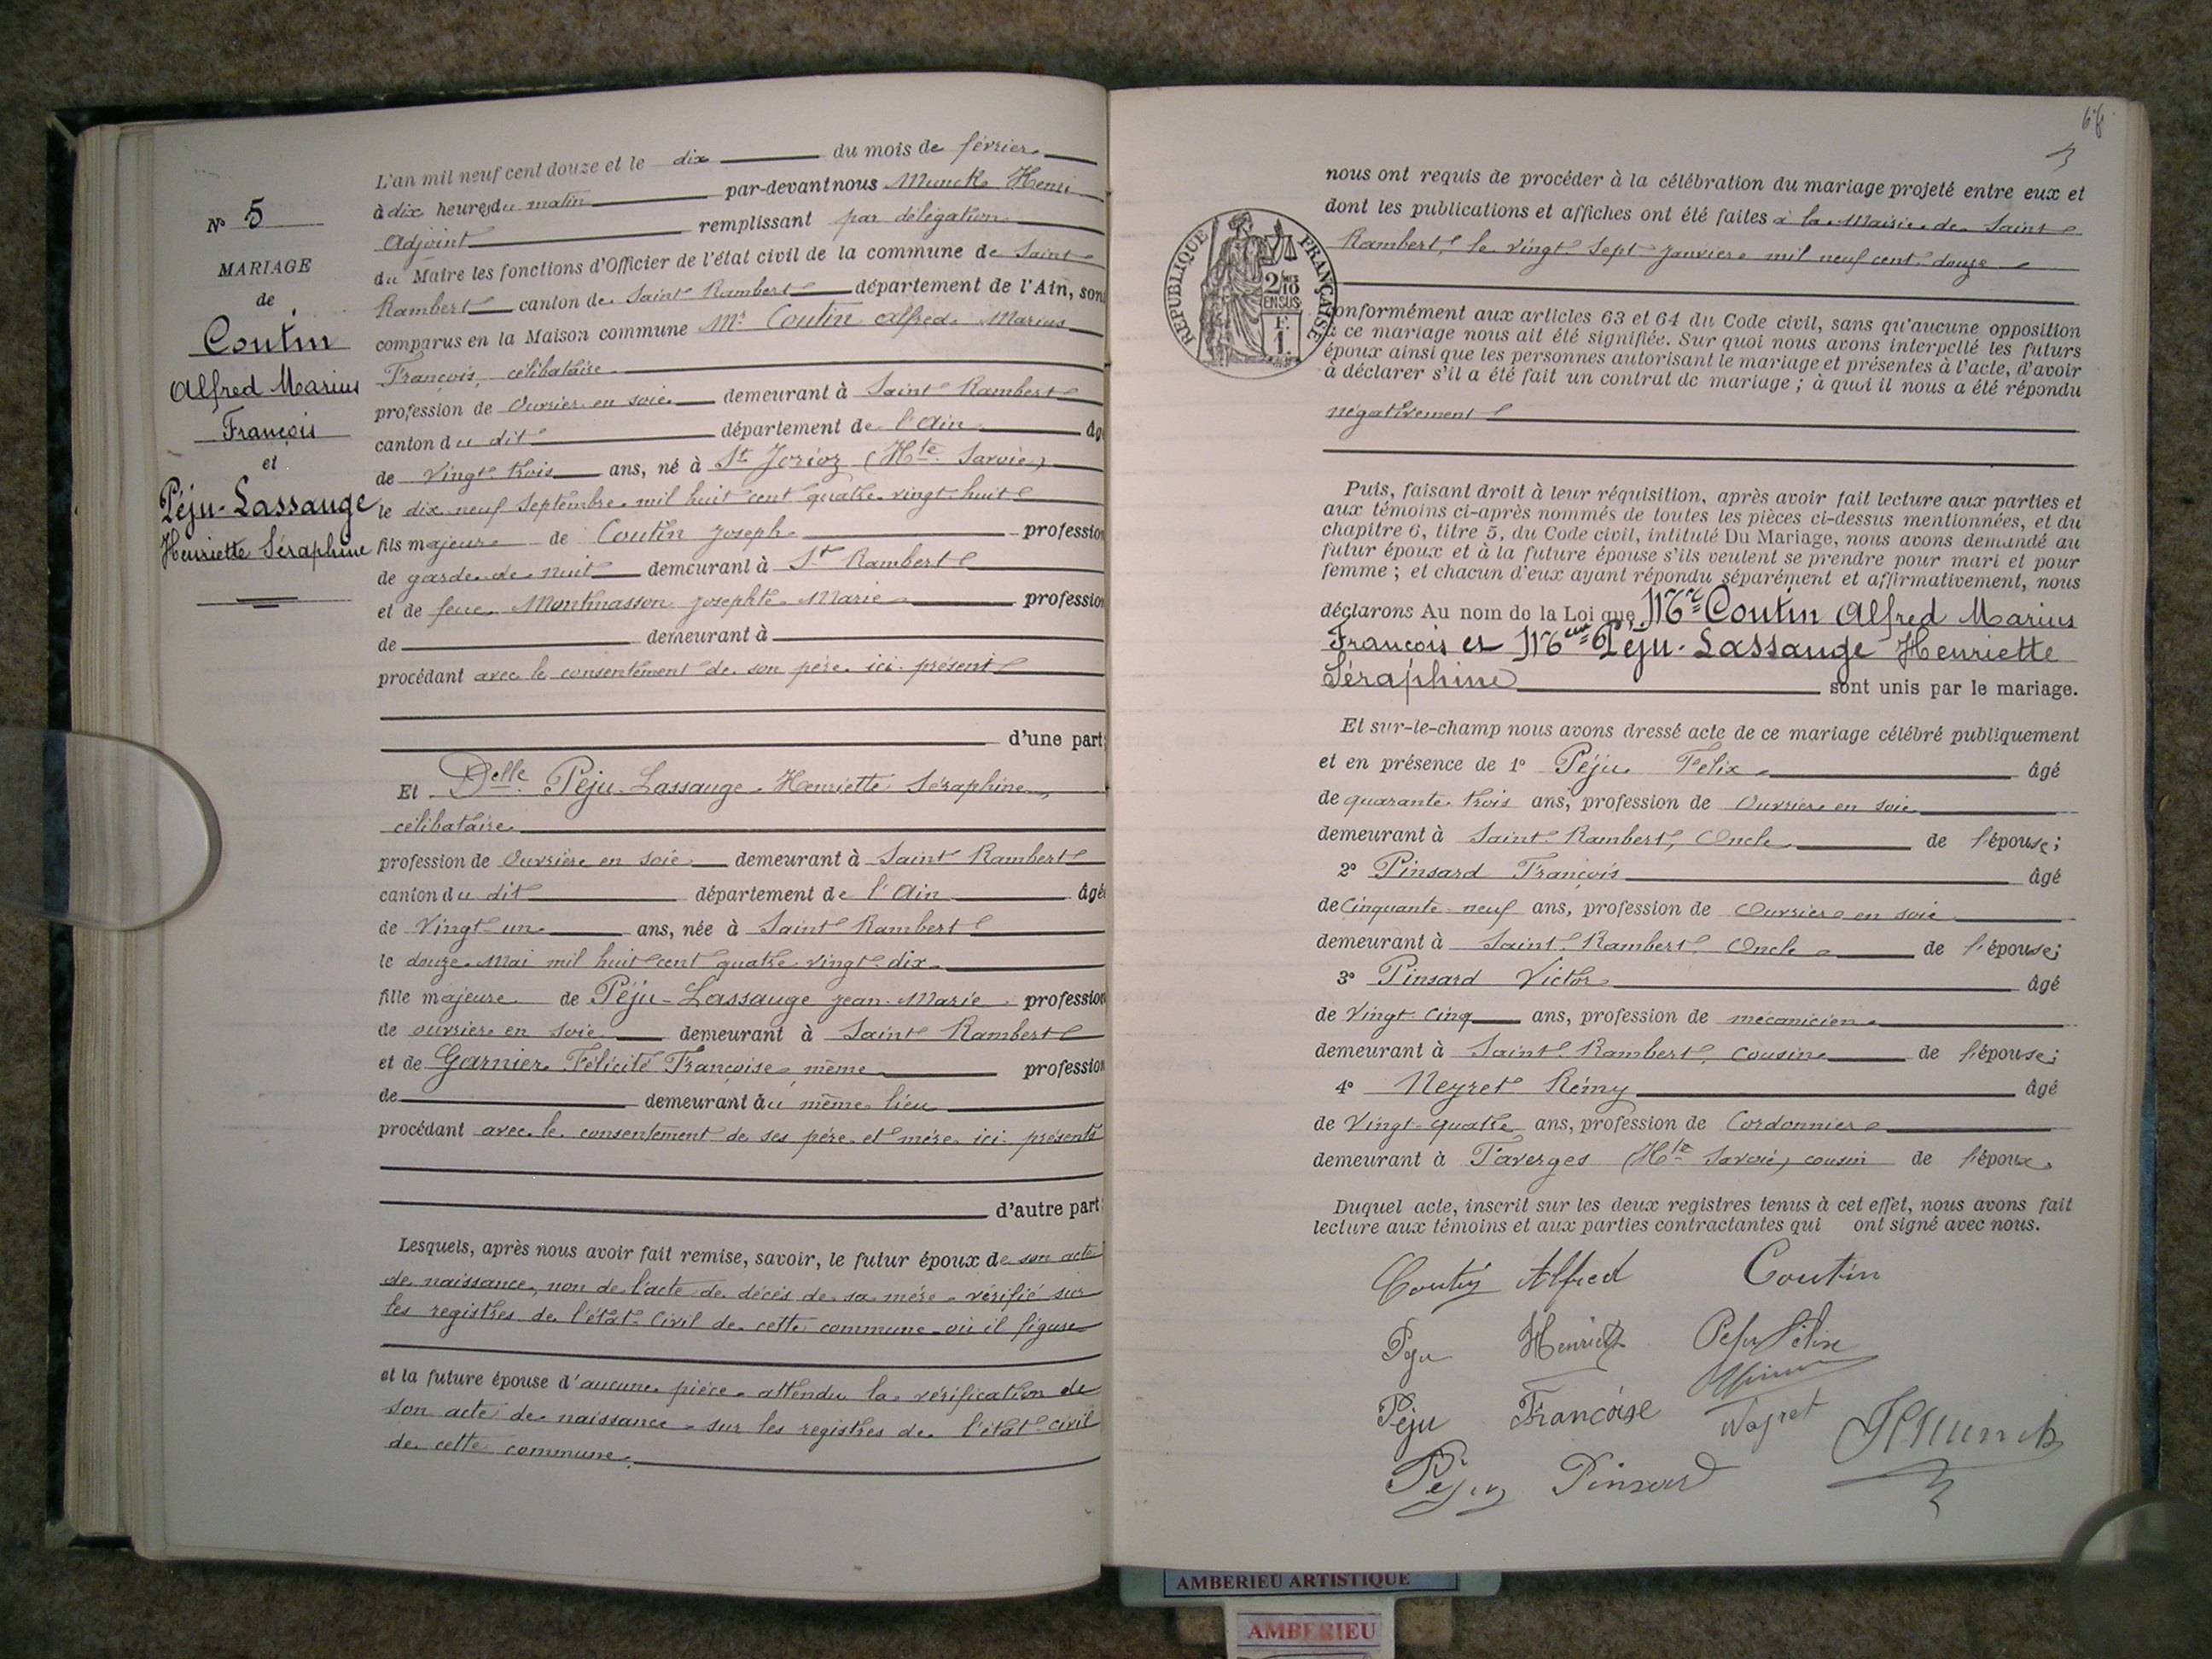 N° 5
MARIAGE
de
Coutin
Alfred Marius
François
et
Péju-Lassauge
Henriette Séraphine
L'an mil neuf cent douze et le dix du mois de février
à dix heures du matin par-devant nous Munck Henri
Adjoint remplissant par délégation
du Maire les fonctions d'Officier de l'état civil de la commune de Saint
Rambert canton de Saint Rambert département de l'Ain, son
comparus en la Maison commune Mr Coutin Alfred Marius
François, célibataire
profession de Ouvrier en soie demeurant à Saint Rambert
canton du dit département de l'Ain âg
de Vingt trois ans, né à St Jorioz (Hte Savoie)
le dix neuf Septembre mil huit cent quatre vingt huit
fils majeur de Coutin Joseph profession
de garde de nuit demeurant à St Rambert
et de feue Montmasson Josephte Marie profession
de demeurant à
procédant avec le consentement de son père ici présent
d'une part;
Et Delle Péju-Lassauge Henriette Séraphine,
célibataire
profession de Ouvrière en soie demeurant à Saint Rambert
canton du dit département de l'Ain âgée
de Vingt un ans, née à Saint Rambert
le douze Mai mil huit cent quatre vingt dix
fille majeure de Péju-Lassauge Jean Marie profession
de ouvrier en soie demeurant à Saint Rambert
et de Garnier Félicité Françoise, même profession
de demeurant au même lieu
procédant avec le consentement de ses père et mère ici présents
d'autre part;
Lesquels, après nous avoir fait remise, savoir, le futur époux de son acte
de naissance, non de l'acte de décès de sa mère vérifié sur
les registres de l'état civil de cette commune où il figure
et la future épouse d'aucune pièce attendu la vérification de
son acte de naissance sur les registres de l'état civil
de cette commune.
68
nous ont requis de procéder à la célébration du mariage projeté entre eux et
dont les publications et affiches ont été faites à la Mairie de Saint
Rambert, le vingt sept Janvier mil neuf cent douze
REPUBLIQUE FRANÇAISE
2/10
EN SUS
F.
1.
onformément aux articles 63 et 64 du Code civil, sans qu'aucune opposition
à ce mariage nous ait été signifiée. Sur quoi nous avons interpellé les futurs
époux ainsi que les personnes autorisant le mariage et présentes à l'acte, d'avoir
à déclarer s'il a été fait un contrat de mariage ; à quoi il nous a été répondu
négativement
Puis, faisant droit à leur réquisition, après avoir fait lecture aux parties et
aux témoins ci-après nommés de toutes les pièces ci-dessus mentionnées, et du
chapitre 6, titre 5, du Code civil, intitulé Du Mariage, nous avons demandé au
futur époux et à la future épouse s'ils veulent se prendre pour mari et pour
femme ; et chacun d'eux ayant répondu séparément et affirmativement, nous
déclarons Au nom de la Loi que, Mr Coutin Alfred Marius
François et Melle Péju-Lassauge Henriette
Séraphine sont unis par le mariage.
Et sur-le-champ nous avons dressé acte de ce mariage célébré publiquement
et en présence de 1° Péju Felix âgé
de quarante trois ans, profession de Ouvrier en soie
demeurant à Saint Rambert, Oncle de l'épouse;
2° Pinsard François âgé
de Cinquante neuf ans, profession de Ouvrier en soie
demeurant à Saint Rambert Oncle de l'épouse;
3° Pinsard Victor âgé
de Vingt cinq ans, profession de mécanicien
demeurant à Saint Rambert, cousin de l'épouse;
4° Neyret Rémy âgé
de Vingt quatre ans, profession de Cordonnier
demeurant à Faverges (Hte Savoie) cousin de l'époux.
Duquel acte, inscrit sur les deux registres tenus à cet effet, nous avons fait
lecture aux témoins et aux parties contractantes qui ont signé avec nous.
Coutin Alfred Coutin
Peju Henriette Peju Félix
Péju Françoise Neyret HMunck
Péju Pinsard
AMBERIEU ARTISTIQUE
AMBERIEU